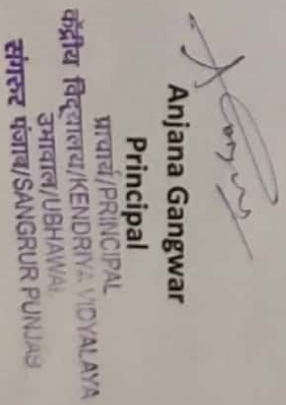 Anjana Gangwar
Principal
प्राचार्य/PRINCIPAL
केंद्रीय विद्यालय/KENDRIYA VIDYALAYA
उभावाल/UBHAWAL
संगरूर पंजाब/SANGRUR PUNJAB